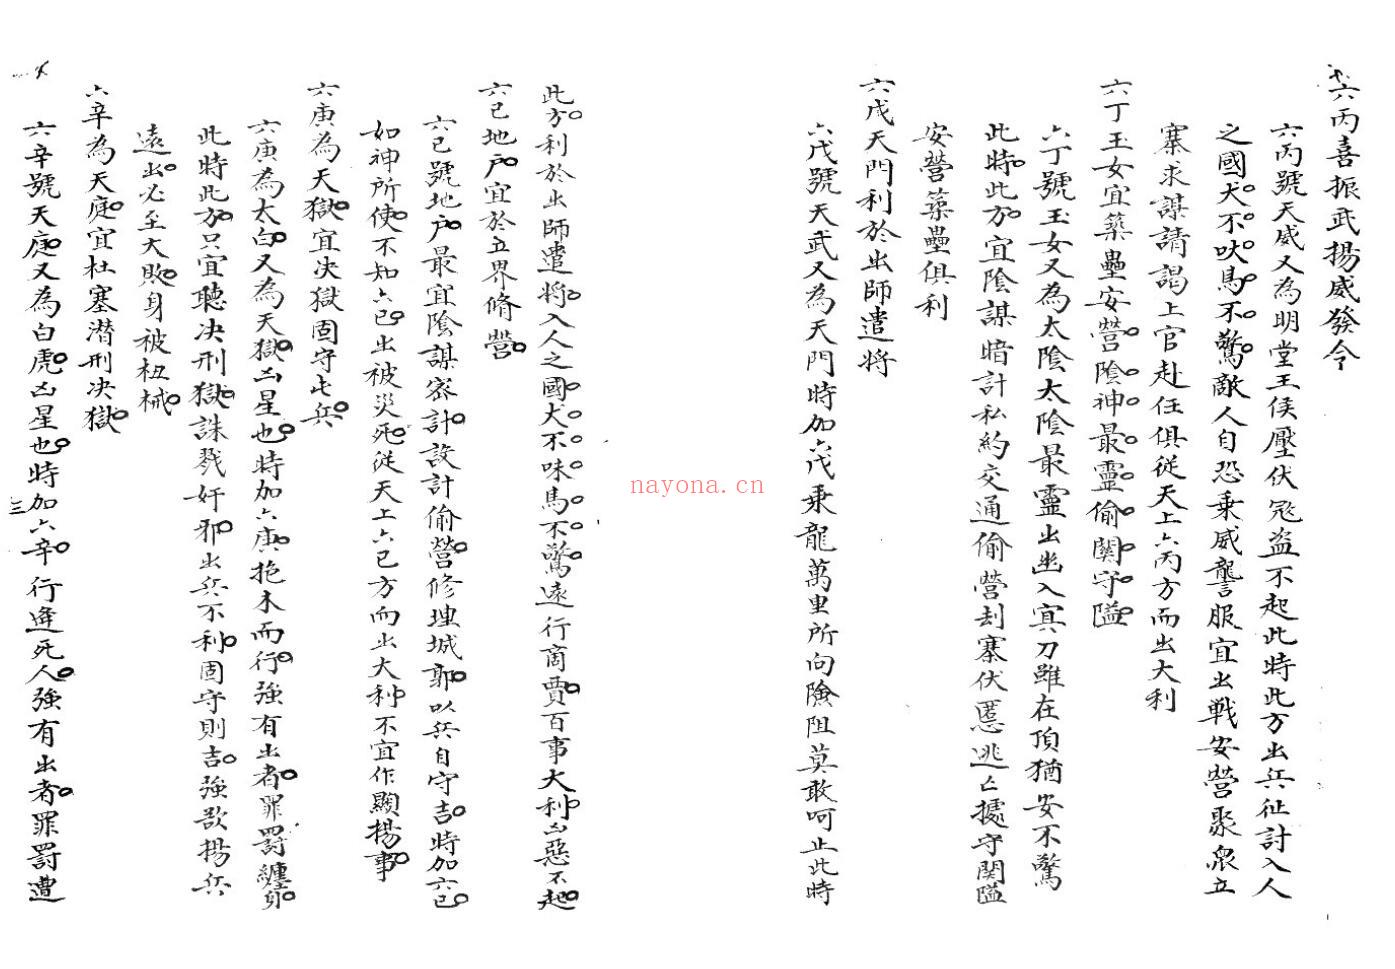 六丙喜振武揚威發令
六丙號天威又為明堂王侯壓伏冦盗不起此時此方出兵征討入人
之國犬不吠馬不驚敵人自恐乗威讋服宜出戰安營聚衆立
寨求謀請謁上官赴任俱從天上六丙方而出大利
六丁玉女宜築壘安營陰神最靈偷關守隘
六丁號玉女又為太陰太陰最靈出幽入冥刀雖在頂猶安不驚
此時此方宜陰謀暗計私約交通偷營刦寨伏匿逃亡據守関隘
安營築壘俱利
六戊天門利於出師遣將
六戊號天武又為天門時加六戊乗龍萬里所向險阻莫敢呵止此時
此方利於出師遣將入人之國犬不味馬不驚遠行商賈百事大利凶惡不起
六己地户宜於立界脩營
六己號地户最宜陰謀宻計設計偷營修理城郭以兵自守吉時加六己
如神所使不知六己出被災死従天上六己方而出大利不宜作顯揚事
六庚為天獄宜决獄固守屯兵
六庚為太白又為天獄凶星也時加六庚抱木而行強有出者罪罰纏身
此時此方只宜聽决刑獄誅戮奸邪出兵不利固守則吉強欲揚兵
遠出必至大敗身被杻械
六辛為天庭宜杜塞潜刑决獄
六辛號天庭又為白虎凶星也時加六辛行逢死人強有出者罪罰遭
三
nayona.cn